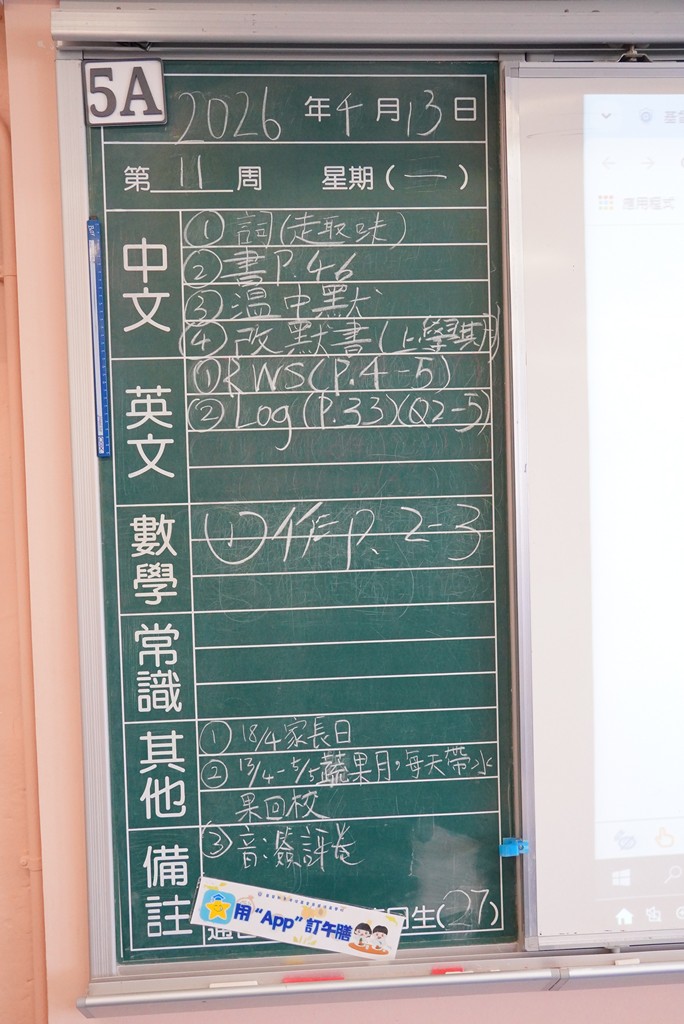 5A
2026 年 4 月 13 日
第 11 周 星期 ( 一 )
中文
① 詞(走取味)
② 書P.46
③ 溫中默
④ 改默書(上學期)
英文
① RWS(P.4-5)
② Log (P.33)(Q2-5)
數學
① 作P. 2-3
常識
其他
① 18/4家長日
② 13/4-5/5蔬果月,每天帶水
果回校
備註
③ 音:簽評卷
用 "App" 訂午膳
生(27)